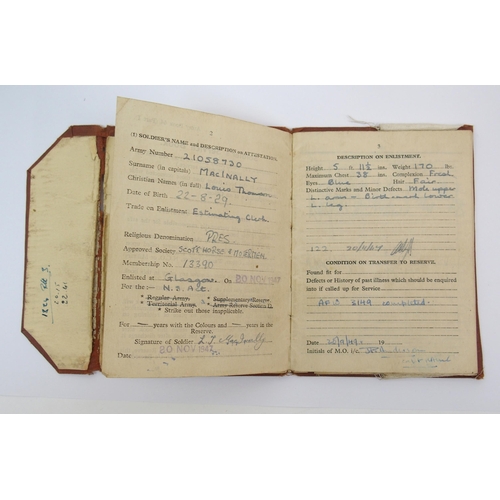 2
(1) SOLDIER'S NAME and DESCRIPTION on ATTESTATION.
Army Number 21058730
Surname (in capitals) MACINALLY
Christian Names (in full) Louis Thomson
Date of Birth 22-8-29.
Trade on Enlistment Estimating Clerk
Religious Denomination PRES.
Approved Society
Membership No. 13390
Enlisted at Glasgow. On 20 NOV 1947
For the :— N.S. Act.
Regular Army. Supplementary Reserve.
Territorial Army. Army Reserve Section D.
Strike out those inapplicable.
For — years with the Colours and — years in the Reserve.
Signature of Soldier L.T. MacInally
Date 20 NOV 1947
3
DESCRIPTION ON ENLISTMENT.
Height 5 ft 11½ ins. Weight 170 lbs.
Maximum Chest 38 ins. Complexion Fresh
Eyes Blue Hair Fair
Distinctive Marks and Minor Defects. Mole upper
L. arm – Birth mark lower
L. leg.
CONDITION ON TRANSFER TO RESERVE.
Found fit for
Defects or History of past illness which should be enquired
into if called up for Service
completed.
Date 19
Initials of M.O. i/c